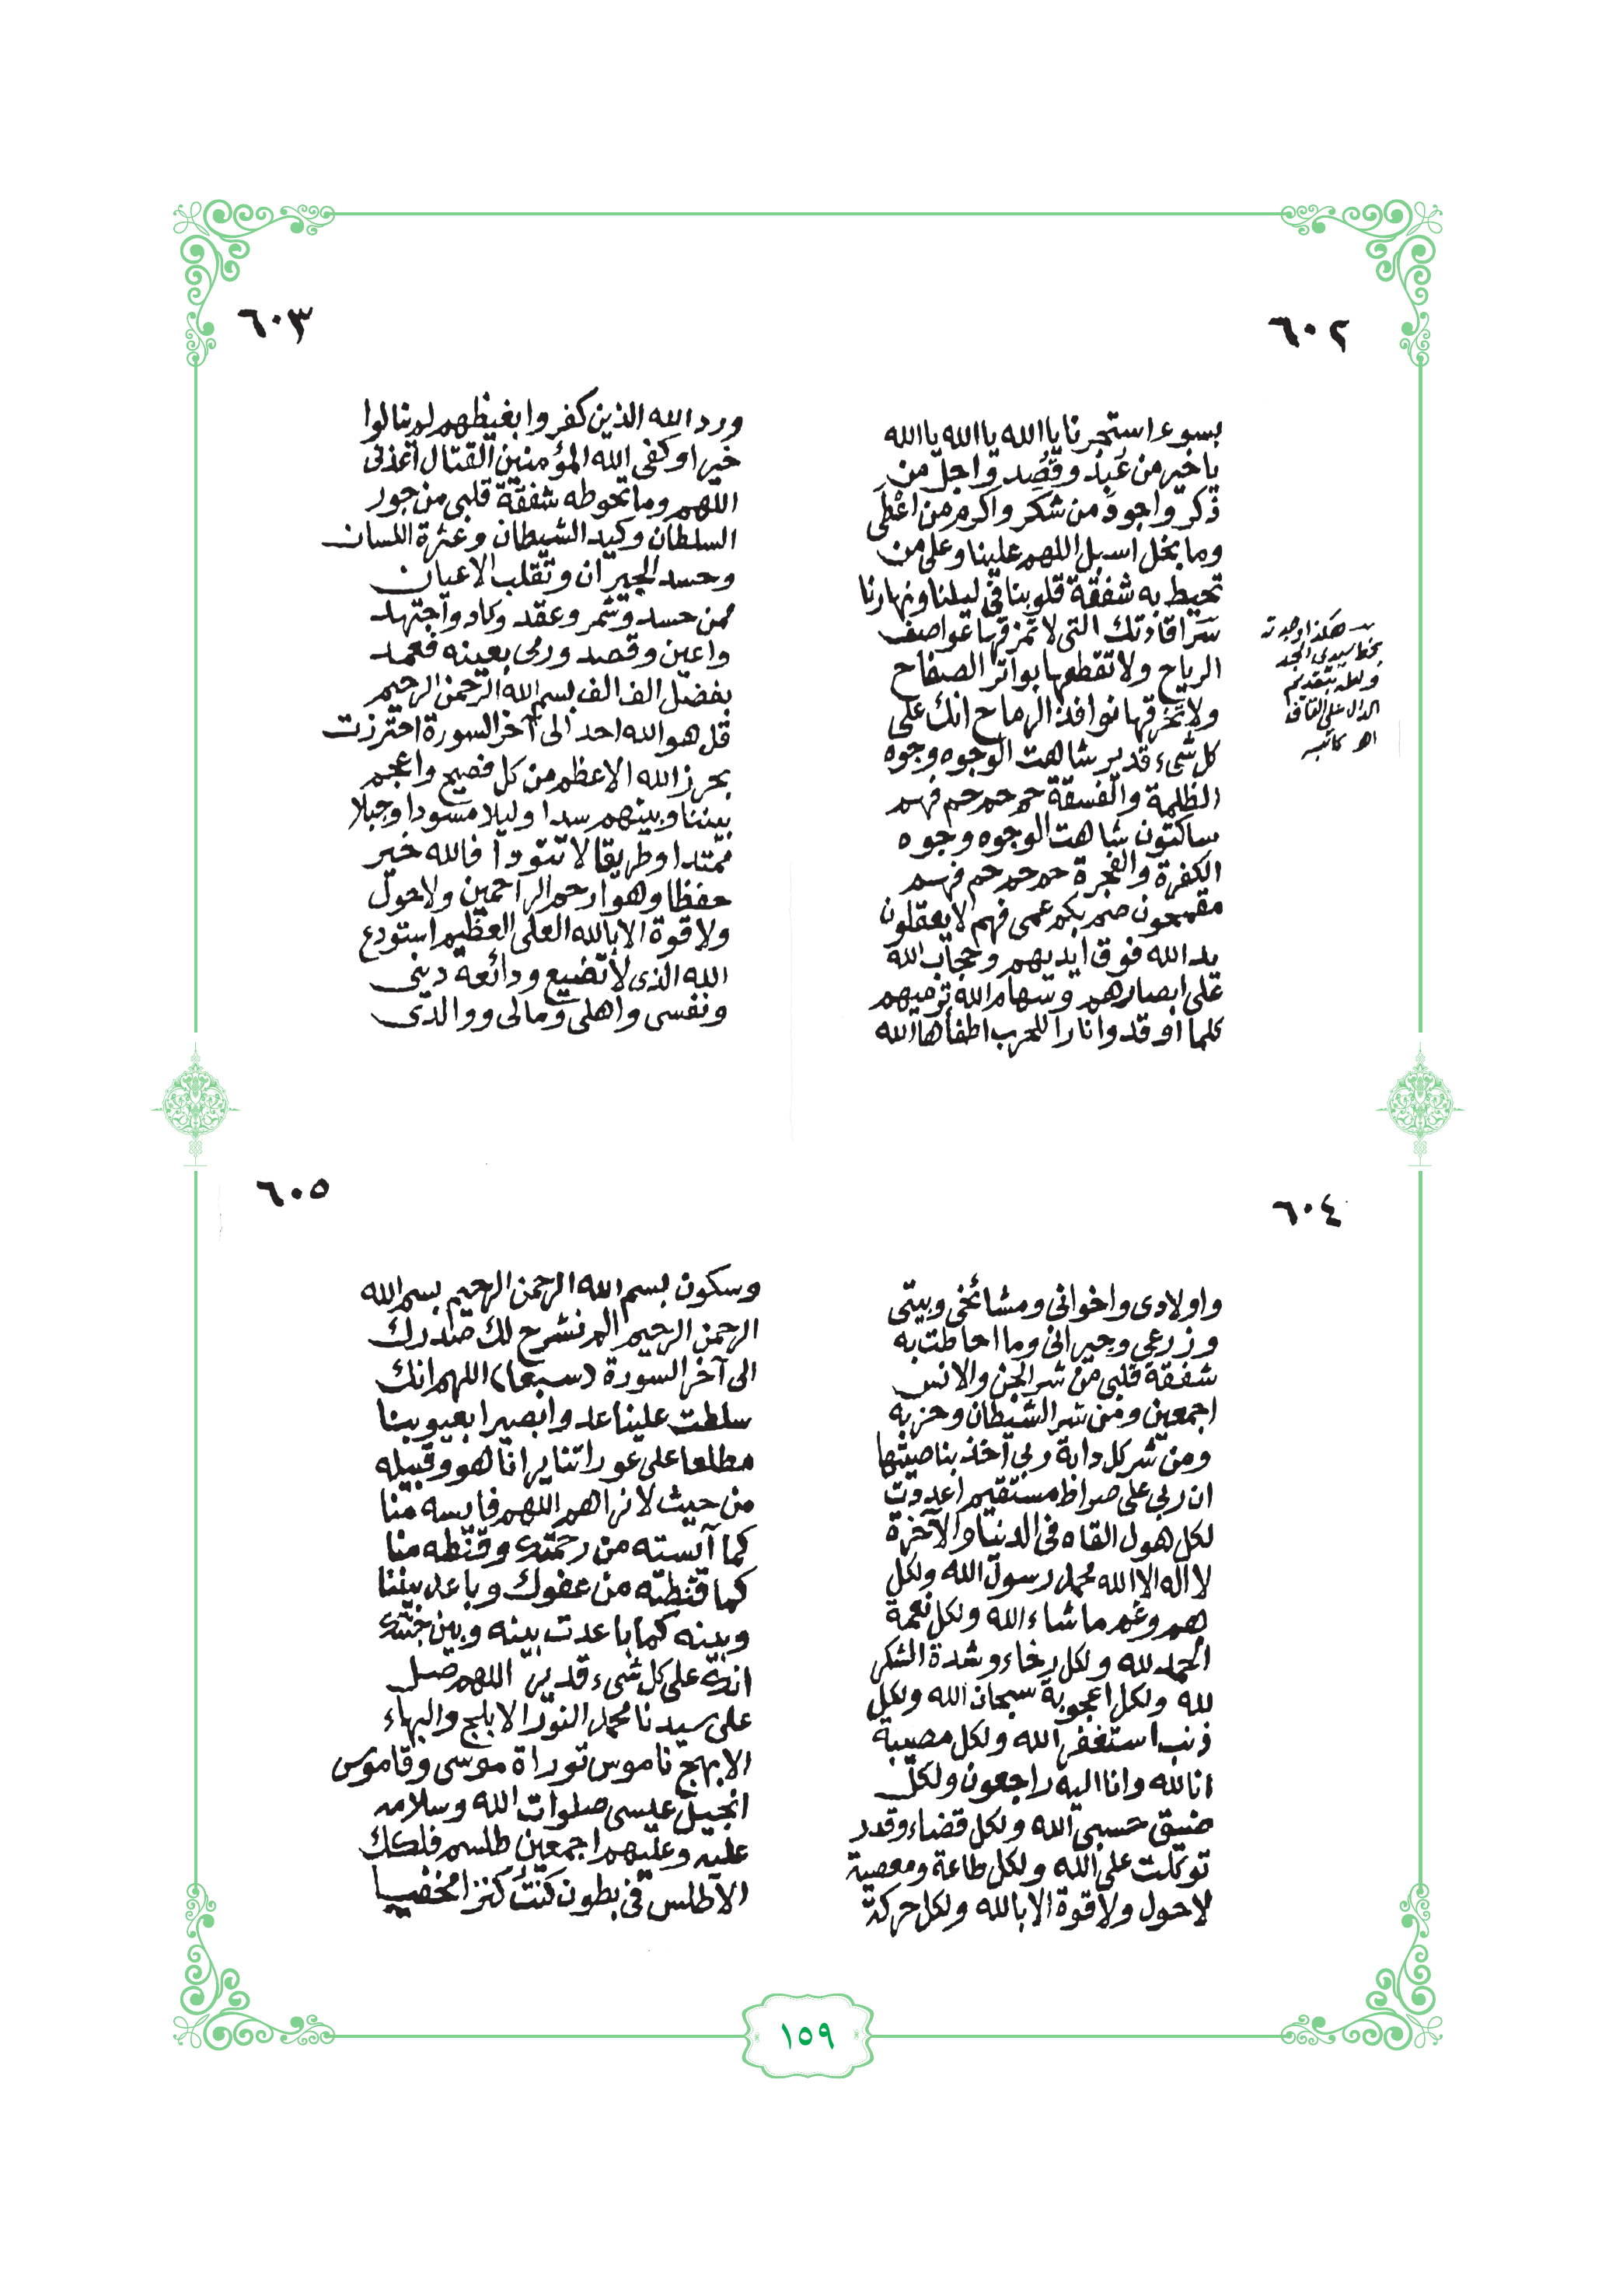 ٦٠٢
بسوء استجرنا يا الله يا الله يا الله
يا خير من عَبِدْ وقُصِد واجل من
ذكر واجود من شكر واكرم من اعْطَى
وما بخل اسبل اللهم علينا وعلى من
تحيط به شفقة قلوبنا في ليلنا ونهارنا
سرَاقادتك التى لا تمزقها عواصف
الرياح ولا تقطعها بواتر الصفاح
ولا تخرقها نوافذ الرماح انك على
كل شىء قدير شاهت الوجوه وجوه
الظلمة والفسقة حم حم حم فهم
ساكتون شاهت الوجوه وجوه
الكفرة والفجرة حم حم حم فهم
مقمحون صم بكم عمى فهم لا يعقلون
يد الله فوق ايديهم وحجاب الله
على ابصارهم وسهام الله ترميهم
كلما اوقدوا نارا للحرب اطفأها الله
هكذا وجدته
بخط سيدى الجد
ولعله بتقديم
الدال على القاف
اهـ كاتبه
٦٠٣
ورد الله الذين كفروا بغيظهم لم ينالوا
خيرا وكفى الله المؤمنين القتال اعذنى
اللهم وما تحوطه شفقة قلبى من جور
السلطان وكيد الشيطان وعثرة اللسان
وحسد الجيران وتقلب الاعيان
ممن حسد وشمر وعقد وكاد واجتهد
واعين وقصد ورمى بعينه فعمد
بفضل الف الف بسم الله الرحمن الرحيم
قل هو الله احد الى آخر السورة احترزت
بحرز الله الاعظم من كل فصيح واعجم
بيننا وبينهم سدا وليلا مسودا وجبلا
ممتدا وطريقا لا تتودا فالله خير
حفظا وهو ارحم الراحمين ولا حول
ولا قوة الا بالله العلى العظيم استودع
الله الذى لا تضيع ودائعه دينى
ونفسى واهلى ومالى ووالدى
٦٠٤
واولادى واخوانى ومشائخى وبيتى
وزرعى وجيرانى وما احاطت به
شفقة قلبى من شر الجن والانس
اجمعين ومن شر الشيطان وحزبه
ومن شر كل دابة ربى آخذ بناصيتها
ان ربى على صراط مستقيم اعددت
لكل هول القاه فى الدنيا والآخرة
لا اله الا الله محمد رسول الله ولكل
هم وغم ما شاء الله ولكل نعمة
الحمد لله ولكل رخاء وشدة الشكر
لله ولكل اعجوبة سبحان الله ولكل
ذنب استغفر الله ولكل مصيبة
انا لله وانا اليه راجعون ولكل
ضيق حسبى الله ولكل قضاء وقدر
توكلت على الله ولكل طاعة ومعصية
لا حول ولا قوة الا بالله ولكل حركة
٦٠٥
وسكون بسم الله الرحمن الرحيم بسم الله
الرحمن الرحيم الم نشرح لك صدرك
الى آخر السورة (سبعا) اللهم انك
سلطت علينا عدوا بصيرا بعيوبنا
مطلعا على عوراتنا يرانا هو وقبيله
من حيث لا نراهم اللهم فايسه منا
كما آيسته من رحمتك وقنّطه منا
كما قنّطته من عفوك وباعد بيننا
وبينه كما باعدت بينه وبين جنتك
انك على كل شىء قدير اللهم صل
على سيدنا محمد النور الابلج والبهاء
الابهج ناموس توراة موسى وقاموس
انجيل عيسى صلوات الله وسلامه
عليه وعليهم اجمعين طلسم فلكك
الاطلس فى بطون كنتُ كنزا مخفيا
١٥٩